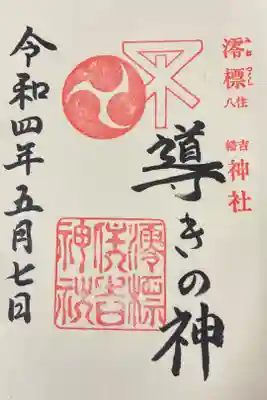 澪標
住吉
八幡
神社
導きの神
澪標
住吉
神社
令和四年五月七日